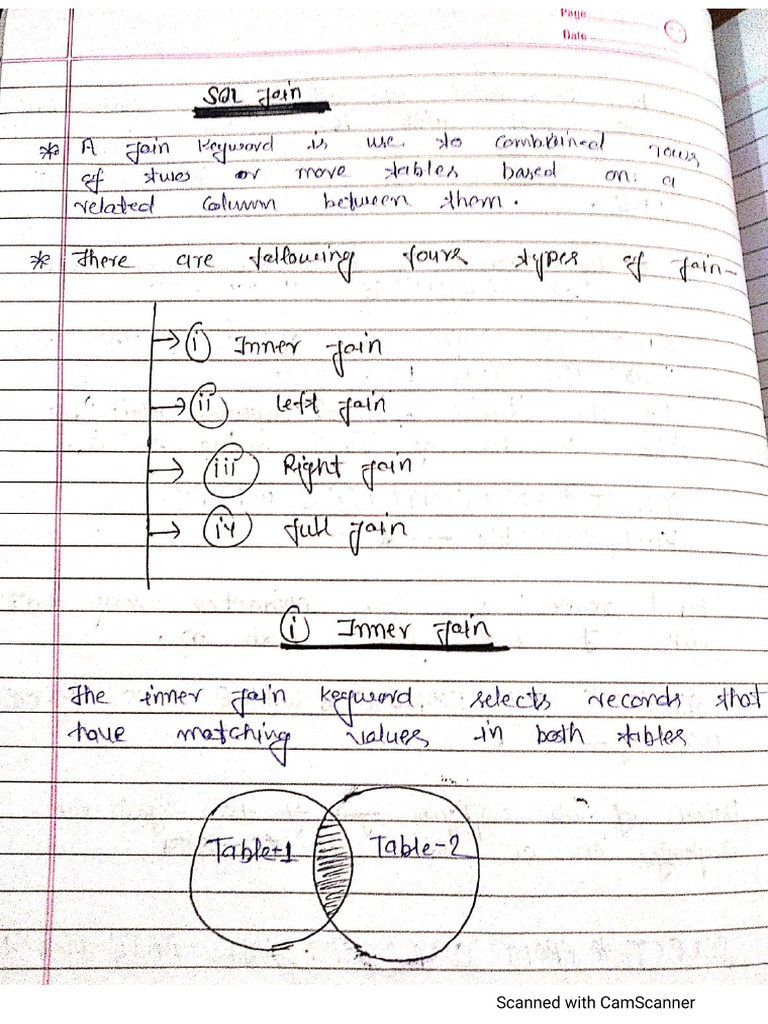 Page
Date
SQL Join
* A Join Keyword is use to combined rows
of twes or more tables based on a
related Column between them.
* There are following fours types of Join-
→ (i) Inner Join
→ (ii) Left Join
→ (iii) Right Join
→ (iv) full Join
(i) Inner Join
The inner Join keyword selects records that
have matching values in both tables
Table-1 Table-2
Scanned with CamScanner